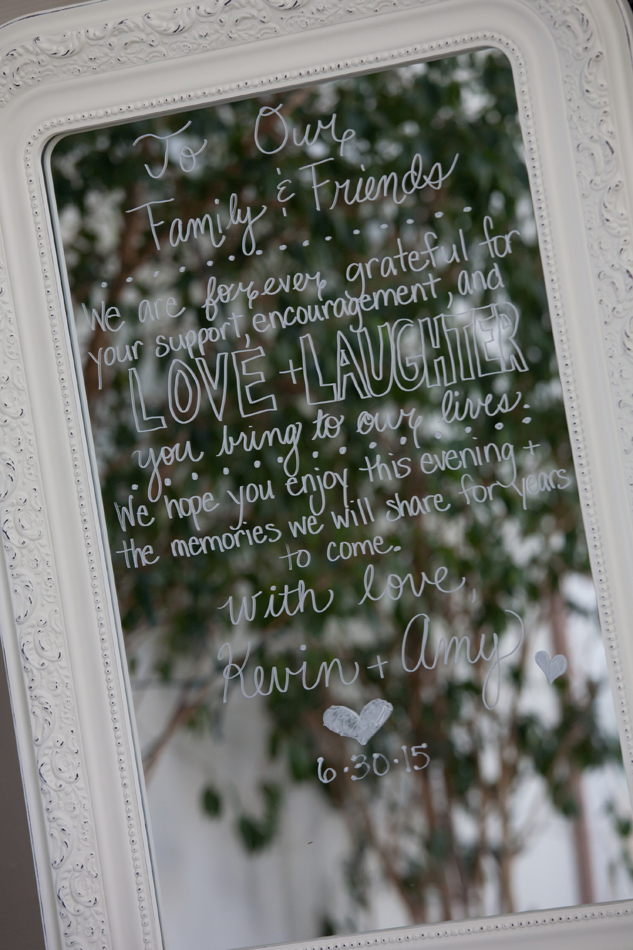 To Our
Family & Friends
We are forever grateful for
your support, encouragement, and
LOVE + LAUGHTER
you bring to our lives.
We hope you enjoy this evening +
the memories we will share for years
to come.
with love,
Kevin + Amy
6·30·15